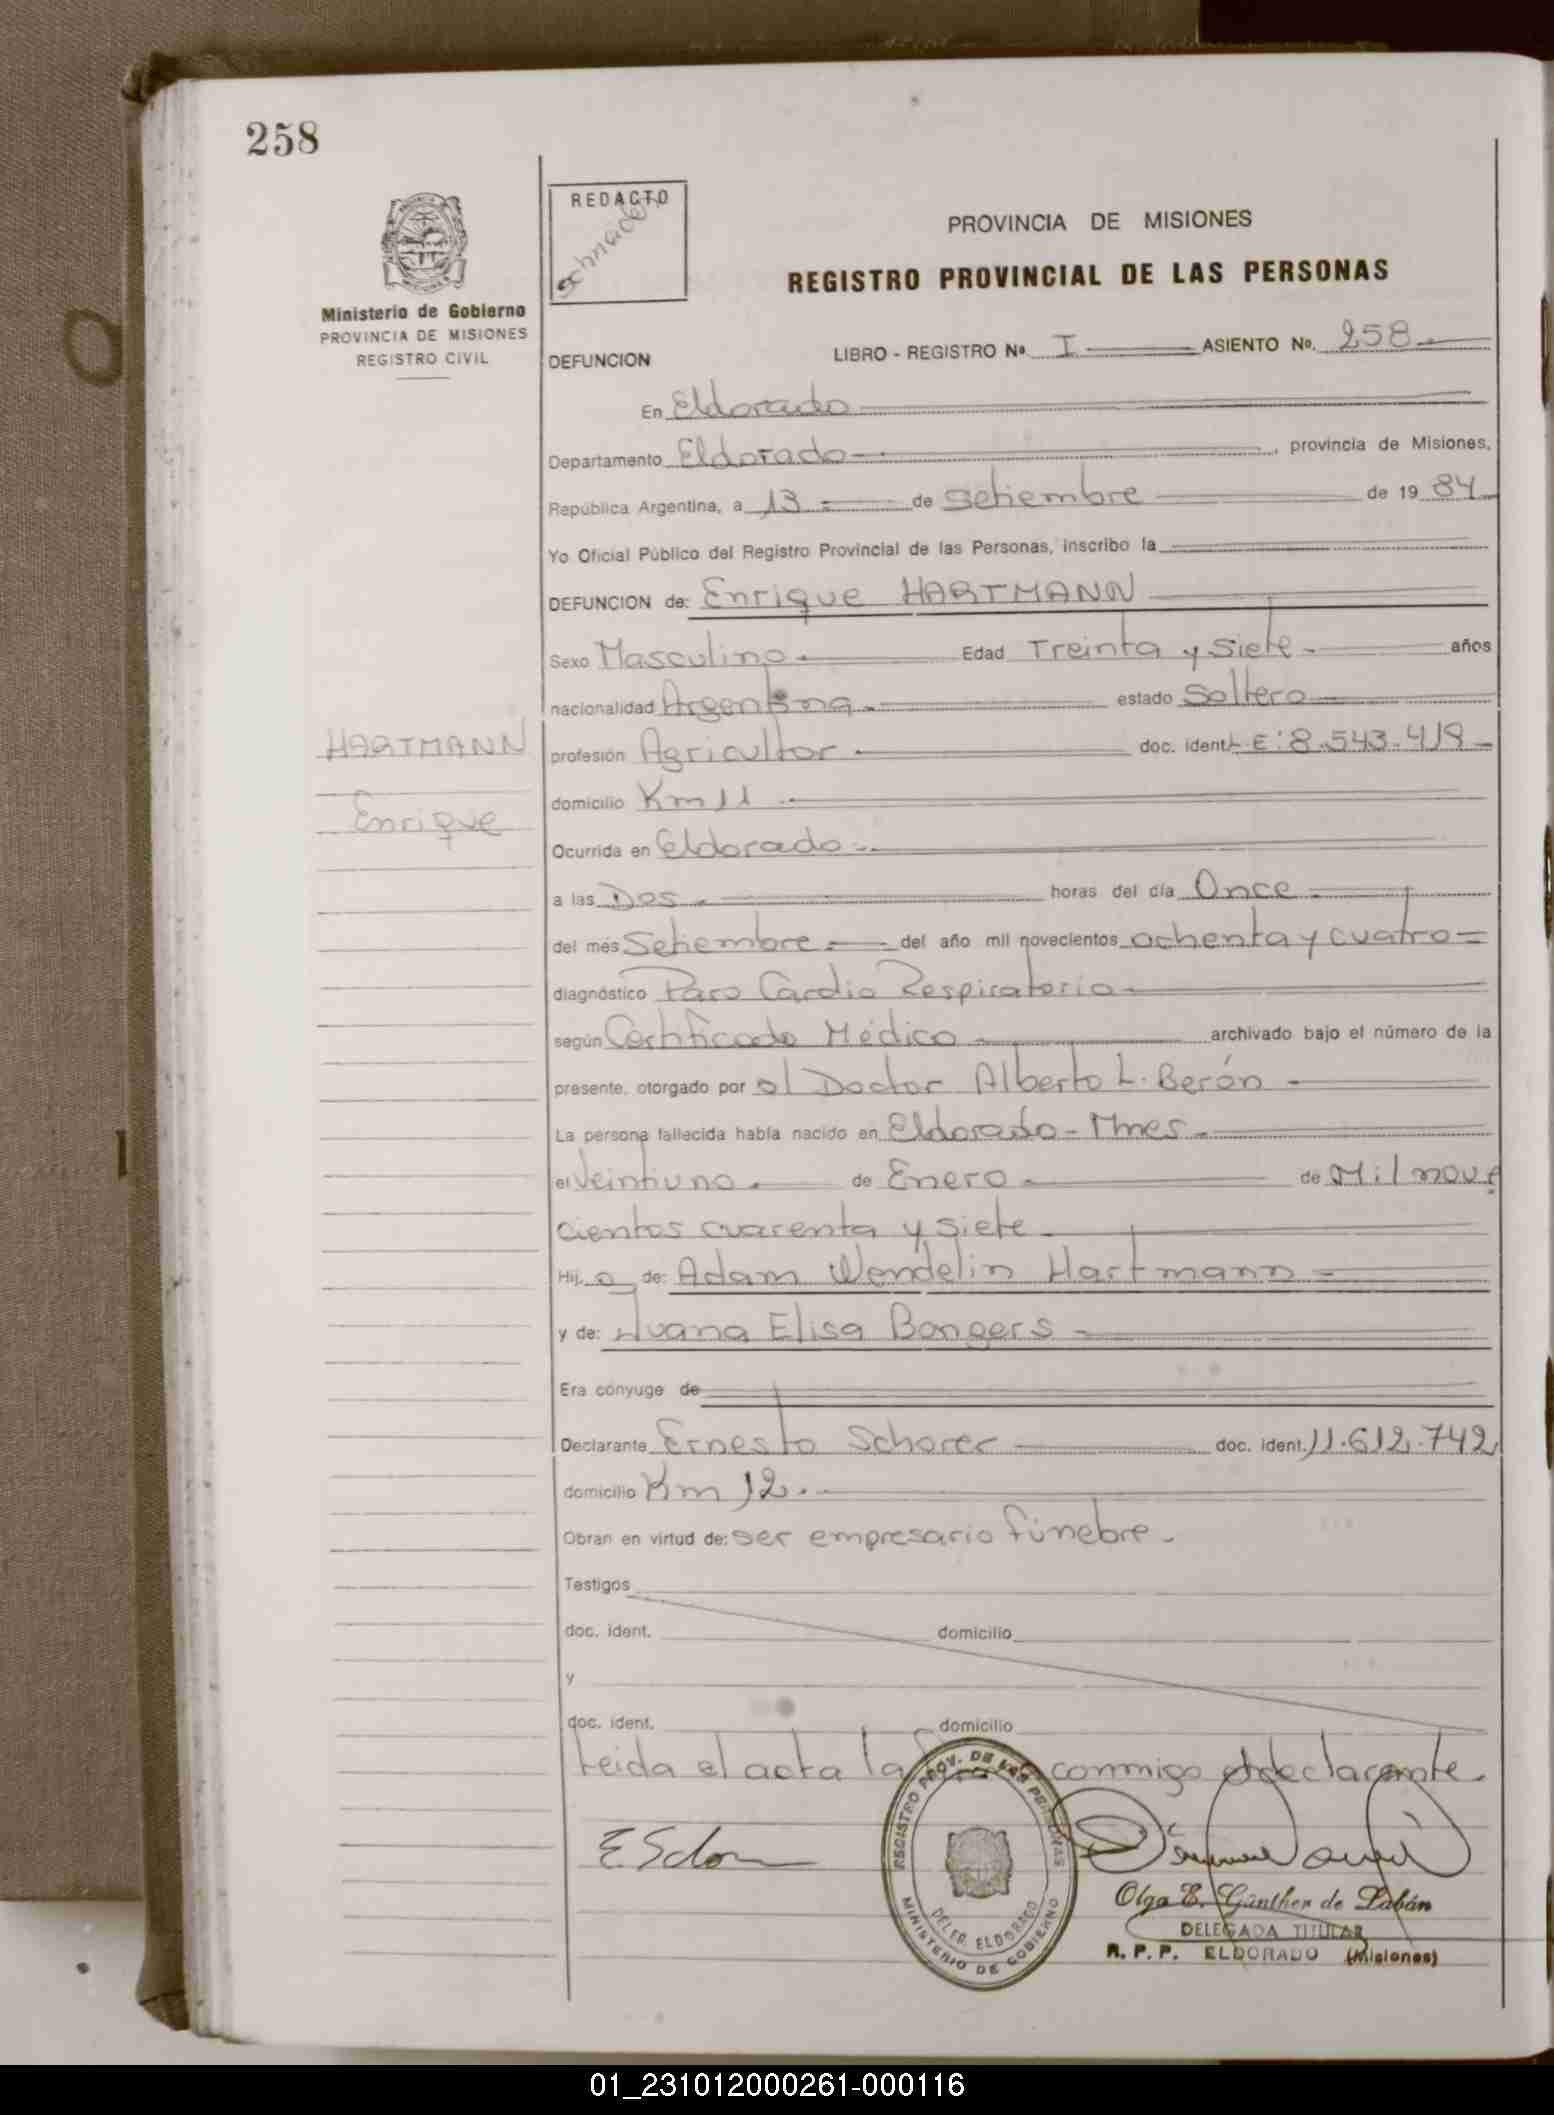 258
REDACTO
Schnader
Ministerio de Gobierno
PROVINCIA DE MISIONES
REGISTRO CIVIL
PROVINCIA DE MISIONES
REGISTRO PROVINCIAL DE LAS PERSONAS
DEFUNCION LIBRO - REGISTRO Nº I ASIENTO Nº. 258.
En Eldorado
Departamento Eldorado , provincia de Misiones,
República Argentina, a 13 de setiembre de 19 84
Yo Oficial Público del Registro Provincial de las Personas, inscribo la
DEFUNCION de: Enrique HARTMANN
Sexo Masculino. Edad Treinta y siete. años
nacionalidad Argentina. estado Soltero
HARTMANN
Enrique
profesión Agricultor doc. ident. L.E: 8.543.418
domicilio Km 11
Ocurrida en Eldorado.
a las Dos. horas del día Once.
del mes Setiembre. del año mil novecientos ochenta y cuatro
diagnóstico Paro Cardio Respiratorio
según Certificado Médico archivado bajo el número de la
presente, otorgado por el Doctor Alberto L. Berón
La persona fallecida había nacido en Eldorado - Mnes.
el Veintiuno. de Enero de Mil nove
cientos cuarenta y siete
Hij o de: Adam Wendelin Hartmann
y de: Juana Elisa Bongers
Era cónyuge de
Declarante Ernesto Schorer doc. ident. 11.612.742
domicilio Km 12.
Obran en virtud de: ser empresario fúnebre.
Testigos
doc. ident. domicilio
y
doc. ident. domicilio
Leida el acta la conmigo el declarante.
REGISTRO PROV. DE LAS PERSONAS
DELEG. ELDORADO
MINISTERIO DE GOBIERNO
Olga E. Günther de Labán
DELEGADA TITULAR
R. P. P. ELDORADO (Misiones)
01_231012000261-000116